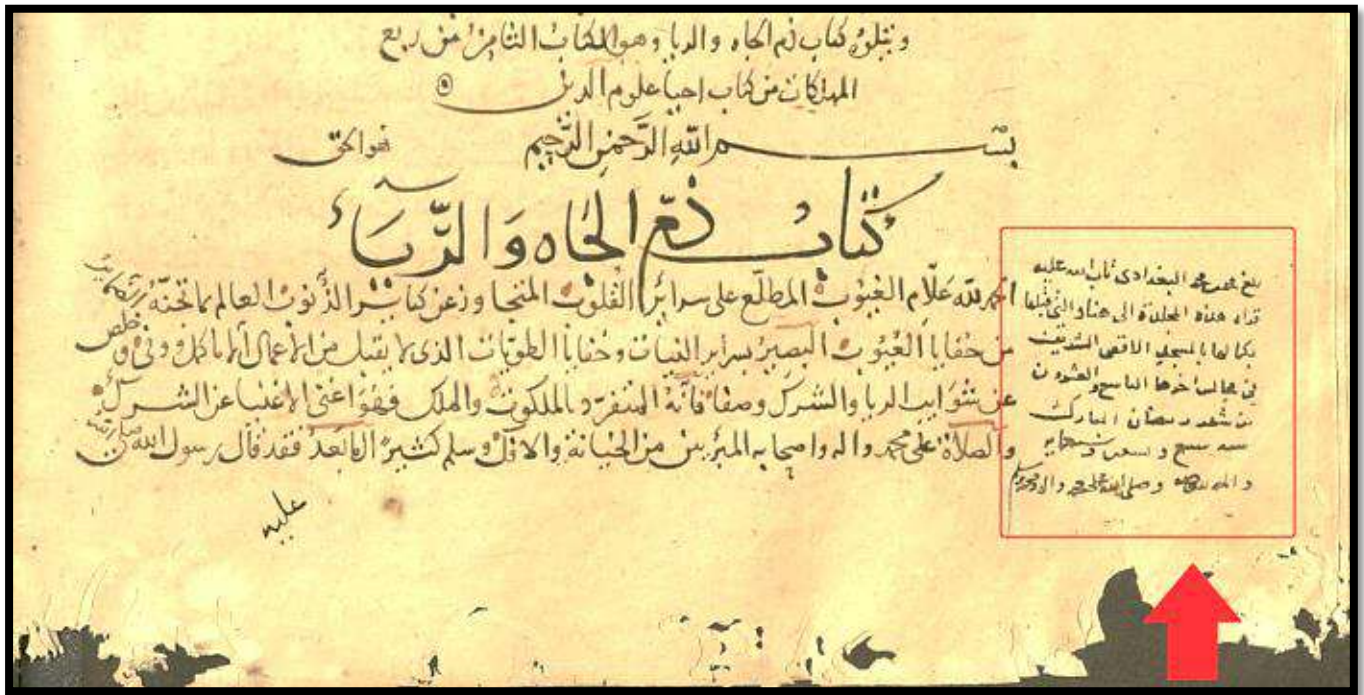 ويتلوه كتاب ذم الجاه والريا وهو الكتاب الثامن من ربع
المهلكات من كتاب احيا علوم الدين
بسم الله الرحمن الرحيم هو الحق
كتاب ذمّ الجاه وَالرّيَاء
الحمر لله علّام الغيوب المطلع على سراير القلوب المتجاوز عن كباير الذنوب العالم بما تجنّه الضماير
من خفايا الغيوب البصير بسراير النيات وخفايا الطويات الذى لا يقبل من الاعمال الا ما كمل ووفى وخلص
عن شوايب الريا والشرك وصفا فانّه المنفرد بالملكوت والملك فهوَ اغنى الاغنيا عن الشرك
والصلاة على محمد واله واصحابه المبرئين من الخيانة والافك وسلم كثيرًا اما بَعدُ فقد قال رسول الله صلى الله
عليه
بلغ محمد محمد البغدادى تاب الله عليه
قراه هذه المجلدة الى هنا والتى قبلها
بكمالها بالمسجد الاقصى الشريف
فى مجالس اخرها التاسع والعشرون
من شهر رمضان المبارك
سنه سبع وسبعماية
والحمد لله وصلى الله على محمد واله